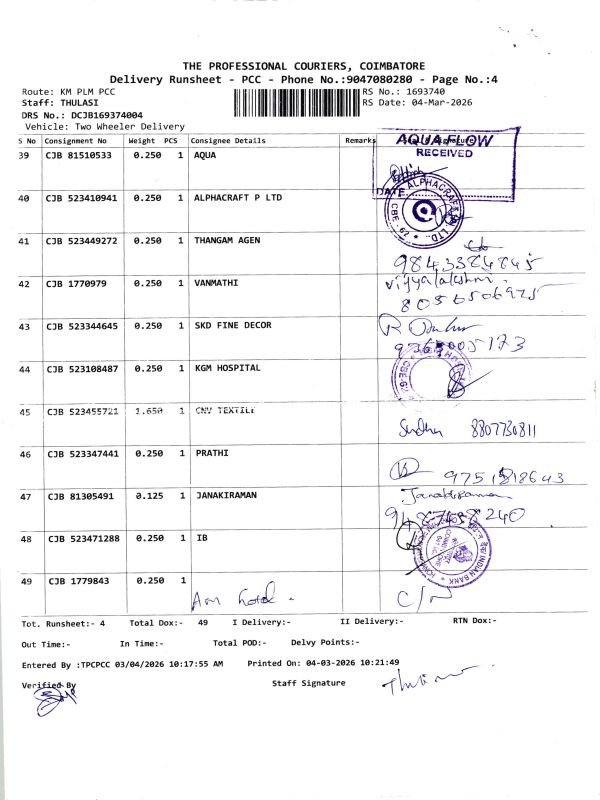 THE PROFESSIONAL COURIERS, COIMBATORE
Delivery Runsheet - PCC - Phone No.:9047080280 - Page No.:4
Route: KM PLM PCC RS No.: 1693740
Staff: THULASI RS Date: 04-Mar-2026
DRS No.: DCJB169374004
Vehicle: Two Wheeler Delivery
S No Consignment No Weight PCS Consignee Details Remarks
39 CJB 81510533 0.250 1 AQUA
AQUA FLOW
RECEIVED
DATE
40 CJB 523410941 0.250 1 ALPHACRAFT P LTD
ALPHACRAFT LTD. CBE-62
41 CJB 523449272 0.250 1 THANGAM AGEN
9843384845
42 CJB 1770979 0.250 1 VANMATHI
Vijayalakshmi
8056506975
43 CJB 523344645 0.250 1 SKD FINE DECOR
R
44 CJB 523108487 0.250 1 KGM HOSPITAL
CBE-62
45 CJB 523455721 1.650 1 CNV TEXTILE
Sindhu 8807730811
46 CJB 523347441 0.250 1 PRATHI
47 CJB 81305491 0.125 1 JANAKIRAMAN
Janakiraman
48 CJB 523471288 0.250 1 IB
INDIAN BANK
49 CJB 1779843 0.250 1
C/N
Tot. Runsheet:- 4 Total Dox:- 49 I Delivery:- II Delivery:- RTN Dox:-
Out Time:- In Time:- Total POD:- Delvy Points:-
Entered By :TPCPCC 03/04/2026 10:17:55 AM Printed On: 04-03-2026 10:21:49
Verified By Staff Signature